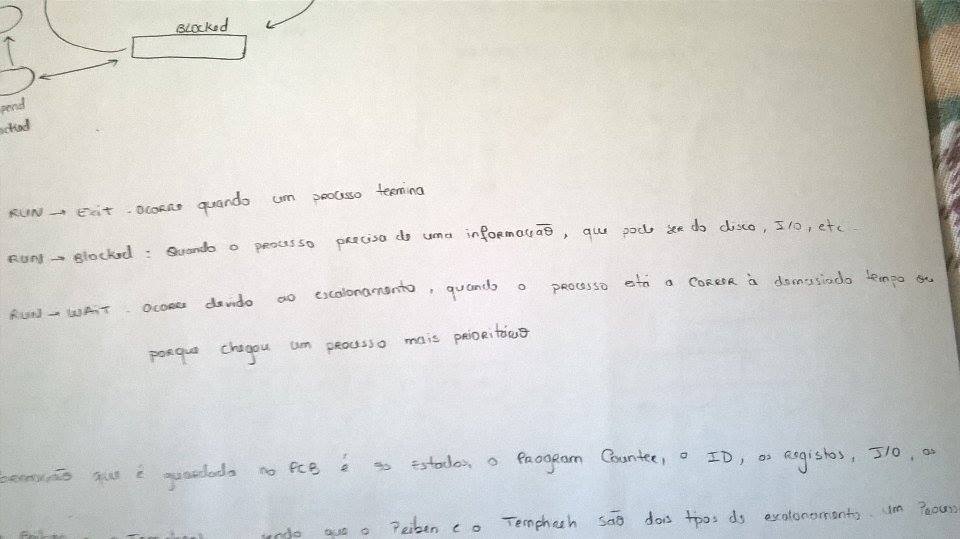 Blocked
pend
RUN → Exit . Ocorre quando um processo termina
RUN → Blocked : Quando o processo precisa de uma informação, que pode ser do disco, I/O, etc...
RUN → WAIT . Ocorre devido ao escalonamento, quando o processo está a correr à demasiado tempo ou
porque chegou um processo mais prioritário
que é guardada no PCB é os Estados, o Program Counter, o ID, os registos, I/O, os
que o e o são dois tipos de escalonamento. um